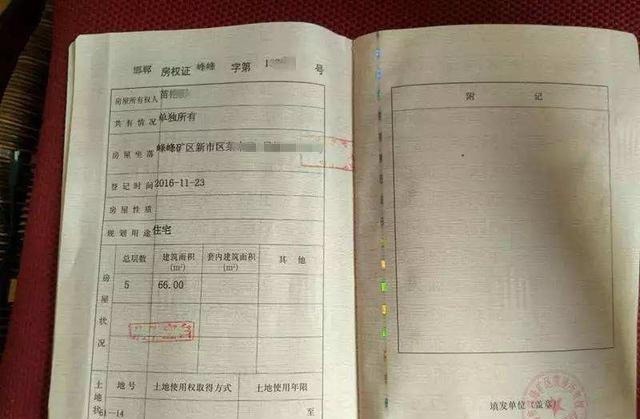 邯郸 房权证 峰峰 字第 1 号
房屋所有权人 苗
共有情况 单独所有
房屋坐落 峰峰矿区新市区东
登记时间 2016-11-23
房屋性质
规划用途 住宅
房屋状况
总层数 建筑面积(m²) 套内建筑面积(m²) 其他
5 66.00
土地状况
地号 土地使用权取得方式 土地使用年限
61-14 至
附 记
填发单位(盖章)